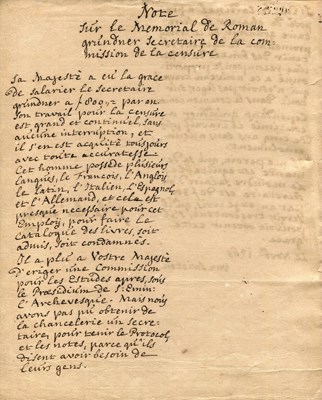 Note
sur le Memorial de Roman
gründner Secretaire de la com-
mission de la censure
Sa Majesté a eü la grace
De salarier le secretaire
gründner a
son travail pour la censure
est grand et continuel sans
aucune interruption, et
il s'en est acquité tousjours
avec toute accuratesse
Cet homme possède plusieurs
langues, le François, l'Anglois
le latin, l'Italien, l'Espagnol,
et l'Allemand, et cela est
presque necessaire pour cet
Employ, pour faire le
Cataloque des livres, soit
admis, soit condamnés.
Il a plû a Vostre Majesté
D'eriger une Commission
pour les Estudes apres, sous
le Præsidium de St. Emin.
l'Archevesque. Mais nous
avons pas pû obtenir de
la chancelerie un secre-
taire, pour tenir le Protocol,
et les notes, parce qu'ils
disent avoir besoin de
leurs gens.